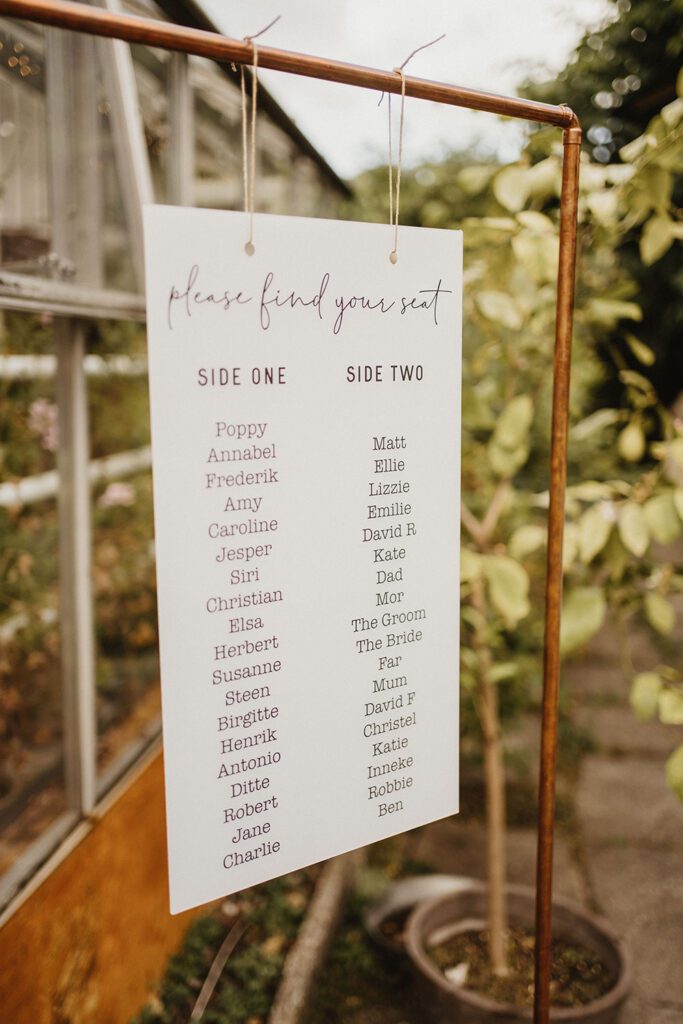 please find your seat
SIDE ONE
Poppy
Annabel
Frederik
Amy
Caroline
Jesper
Siri
Christian
Elsa
Herbert
Susanne
Steen
Birgitte
Henrik
Antonio
Ditte
Robert
Jane
Charlie
SIDE TWO
Matt
Ellie
Lizzie
Emilie
David R
Kate
Dad
Mor
The Groom
The Bride
Far
Mum
David F
Christel
Katie
Inneke
Robbie
Ben